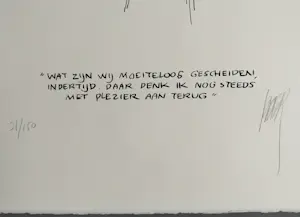 "WAT ZIJN WIJ MOEITELOOS GESCHEIDEN,
INDERTIJD. DAAR DENK IK NOG STEEDS
MET PLEZIER AAN TERUG"
/150